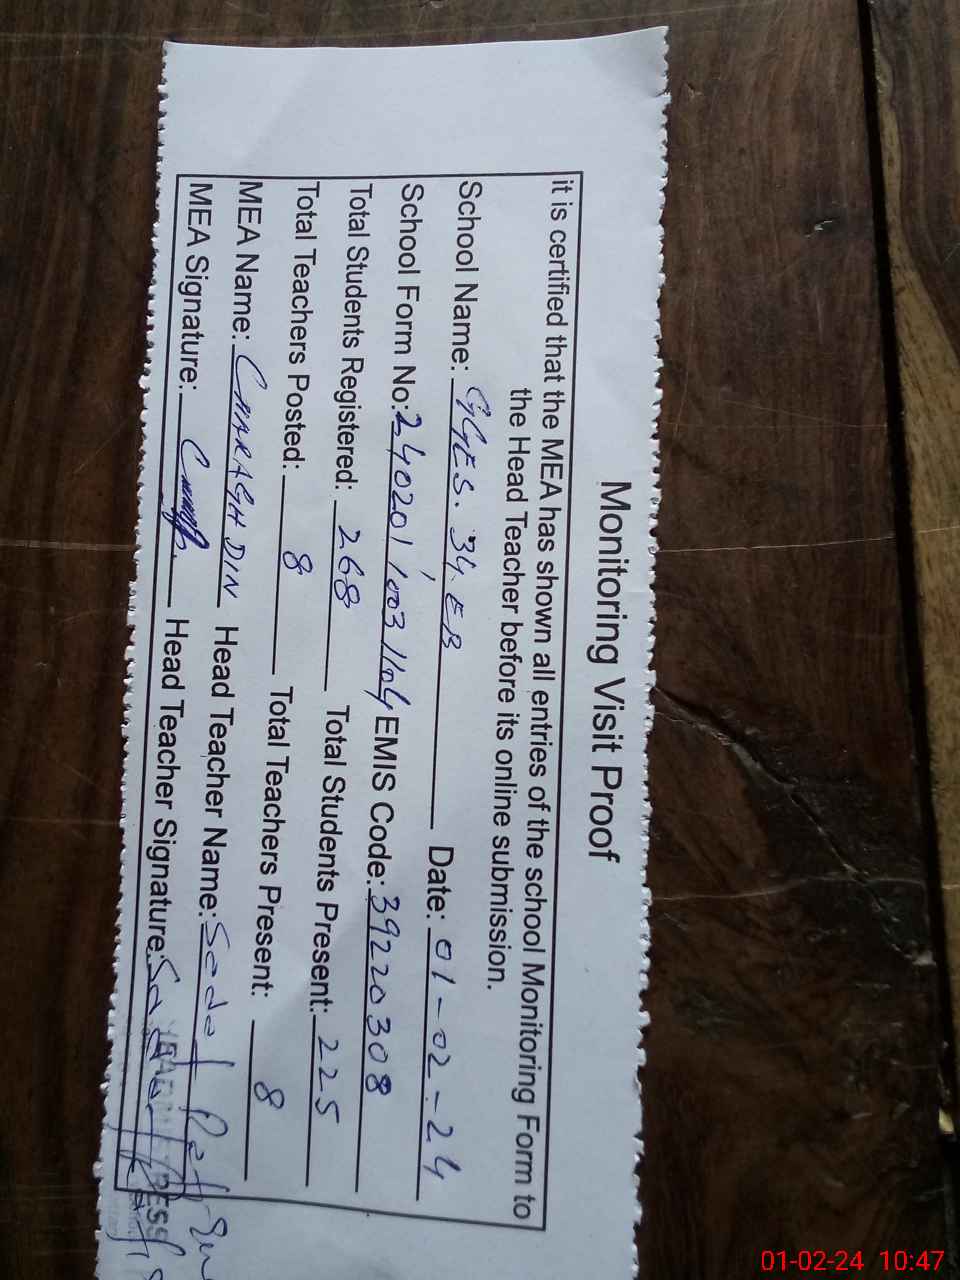 Monitoring Visit Proof
it is certified that the MEA has shown all entries of the school Monitoring Form to
the Head Teacher before its online submission.
School Name: GGES. 34. EB Date: 01-02-24
School Form No: 240201/1003/1104 EMIS Code: 39220308
Total Students Registered: 268 Total Students Present: 225
Total Teachers Posted: 8 Total Teachers Present: 8
MEA Name: CHARAGH DIN Head Teacher Name: Sadaf
MEA Signature: Head Teacher Signature: Sadaf
01-02-24 10:47